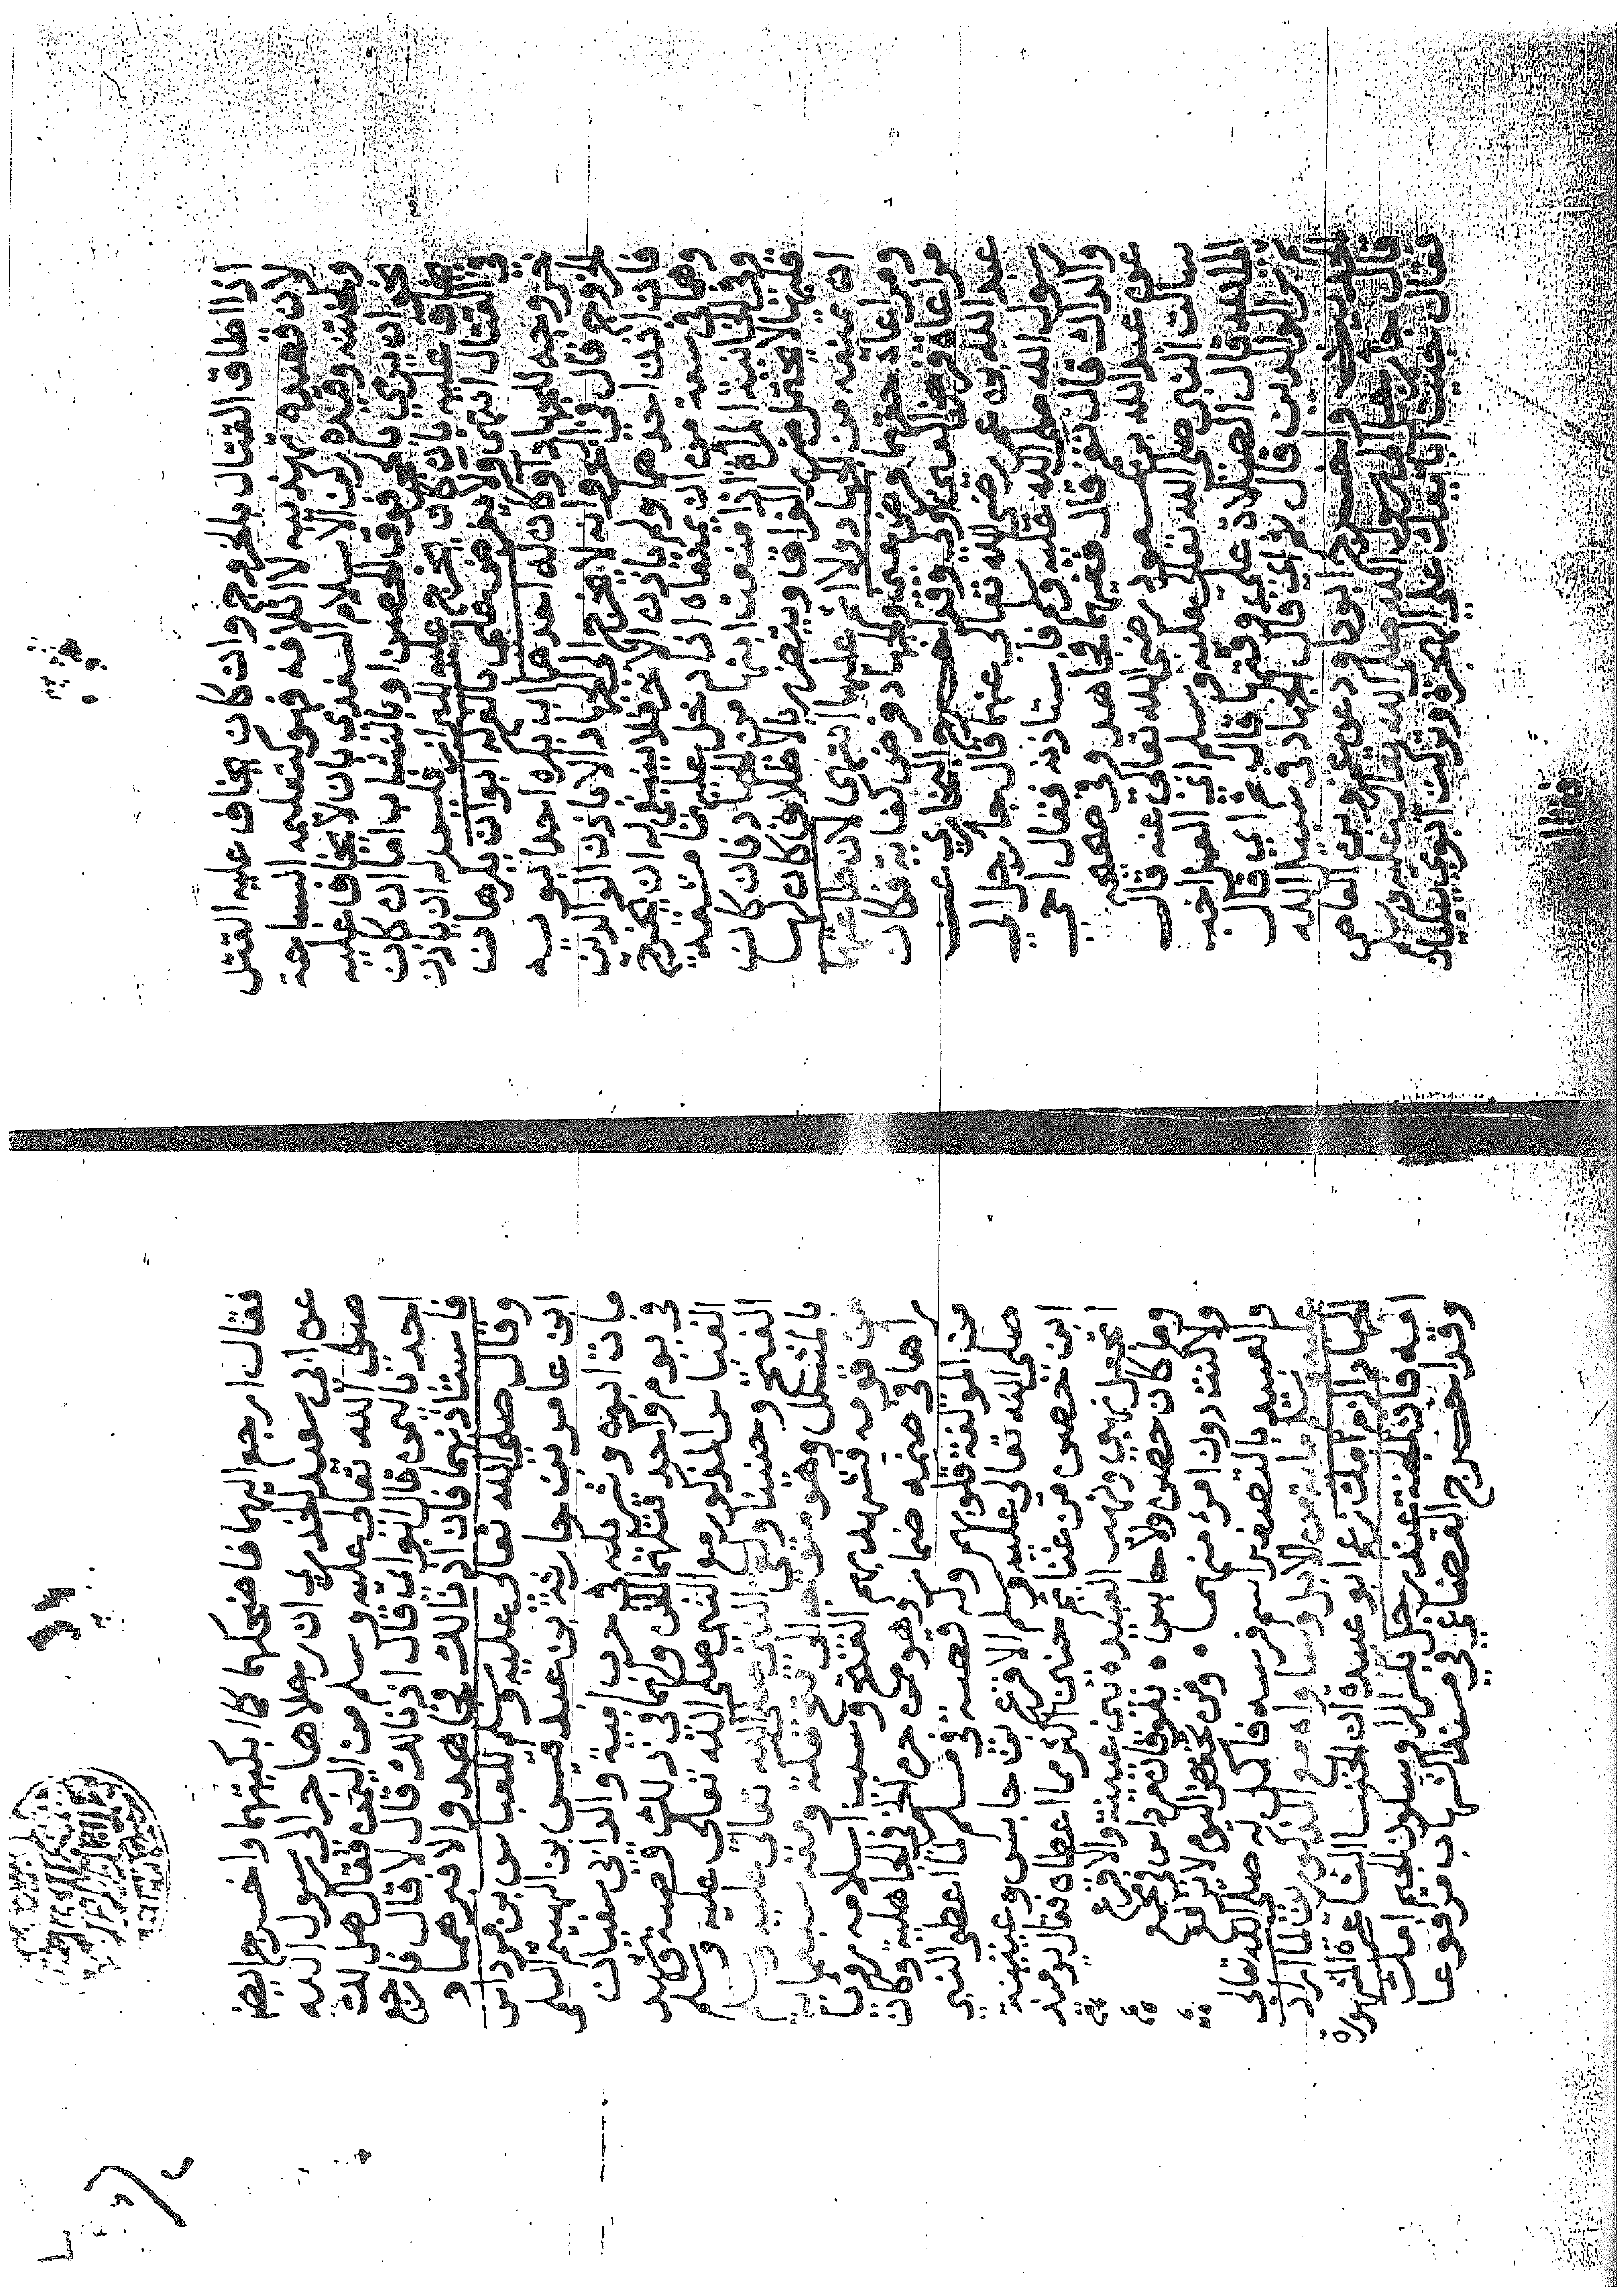 اذا اطاق القتال بالخروج وان كان يخاف عليه القتل
لان قصده تهذيبه لا اتلافه فهو كتعليمه السباحة
وقيده ركن الاسلام السغدي بان لا يخاف عليه
نحو ان يرمي بالحجر فوق الحصن او بالنشاب اما ان كان
يخاف عليه بان كان يخرج للبراز فليس له ان ياذن
في القتال انتهى ولا يفرض على بالغ له ابوان يكرهان
خروجه للجهاد او كان له احدهما ان يكره احد ابويه
الخروج قال في الجوهرة لا يخرج الى الجهاد الا باذن الوالدين
فان اذن احدهما ولم ياذن الاخر فلا ينبغي له ان يخرج
وهما في سعة من ان يمنعاه اذا دخل عليهما مشقة
وفي الخانية المراة اذا منعت ابنها من الجهاد فان كان
قلبها لا يحتمل ضرر الفراق وتتضرر بالاطلاق كان لها
ان تمنعه من الجهاد ولا اثم عليها انتهى لان طاعتهما
ومراعاة حقهما فرض عين والجهاد فرض كفاية فكان
مراعاة فرض العين اولى وقد اخرج البخاري عن
عبد الله بن عمر رضي الله تعالى عنهما قال جاء رجل الى
رسول الله صلى الله عليه وسلم فاستاذنه فقال احي
والداك قال نعم قال ففيهما فجاهد وفي صحيحه
عن عبد الله بن مسعود رضي الله تعالى عنه قال
سالت النبي صلى الله تعالى عليه وسلم اي العمل احب
الى الله قال الصلاة على وقتها قال ثم اي قال
بر الوالدين قال ثم اي قال الجهاد في سبيل الله
الحديث واخرج ابو داود عن عمرو بن العاص
قال جاء رجل الى رسول الله صلى الله تعالى عليه وسلم
فقال جئت ابايعك على الهجرة وتركت ابوي يبكيان
فقال
فقال ارجع اليهما فاضحكهما كما ابكيتهما واخرج ايضا
عن ابي سعيد الخدري ان رجلا هاجر الى رسول الله
صلى الله تعالى عليه وسلم من اليمن فقال هل لك
احد باليمن قال ابواي قال اذنا لك قال لا قال فارجع
فاستاذنهما فان اذنا لك فجاهد والا فبرهما و
وقال صلى الله تعالى عليه وسلم للعباس بن مرداس
ابن عامر بن حارثة بن عبد قيس بن الهيثم السلمي
مات ابوه وشريكه حرب بن امية والد ابي سفيان
في يوم واحد قتلهما الجن ولهما في ذلك قصة وشهد
العباس المذكور مع النبي صلى الله تعالى عليه وسلم
الفتح وحنينا ولقي النبي صلى الله تعالى عليه وسلم
بالمشلل وهو متوجه الى فتح مكة ومعه سبعماية
من قومه فشهد بهم الفتح وسبب اسلامه رويا
راها في صنمه ضمار وهو ممن حرم الخمر في الجاهلية وكان
من المؤلفة قلوبهم وله قصة في مسلم لما اعطى النبي
صلى الله تعالى عليه وسلم الاقرع بن حابس وعيينة
ابن حصن من غنائم حنين اكثر مما اعطاه فقال يومئذ
اتجعل نهبي ونهب العبيد بين عيينة والاقرع
وما كان حصن ولا حابس يفوقان مرداس في مجمع
ولا كنت دون امرئ منهما ومن تخفض اليوم لا يرفع
والعبيد بالتصغير اسم فرسه فاكمل له صلى الله تعالى
عليه وسلم ماية من الابل وساواه مع المذكورين لما اراد
الجهاد الزم امك زعم ابو عبيدة ان الخنساء الشاعرة المشهورة
امه فان الجنة عند رجل بكسر الراء وسكون الجيم امك
وقد اخرج القضاعي في مسند الشهاب مرفوعا